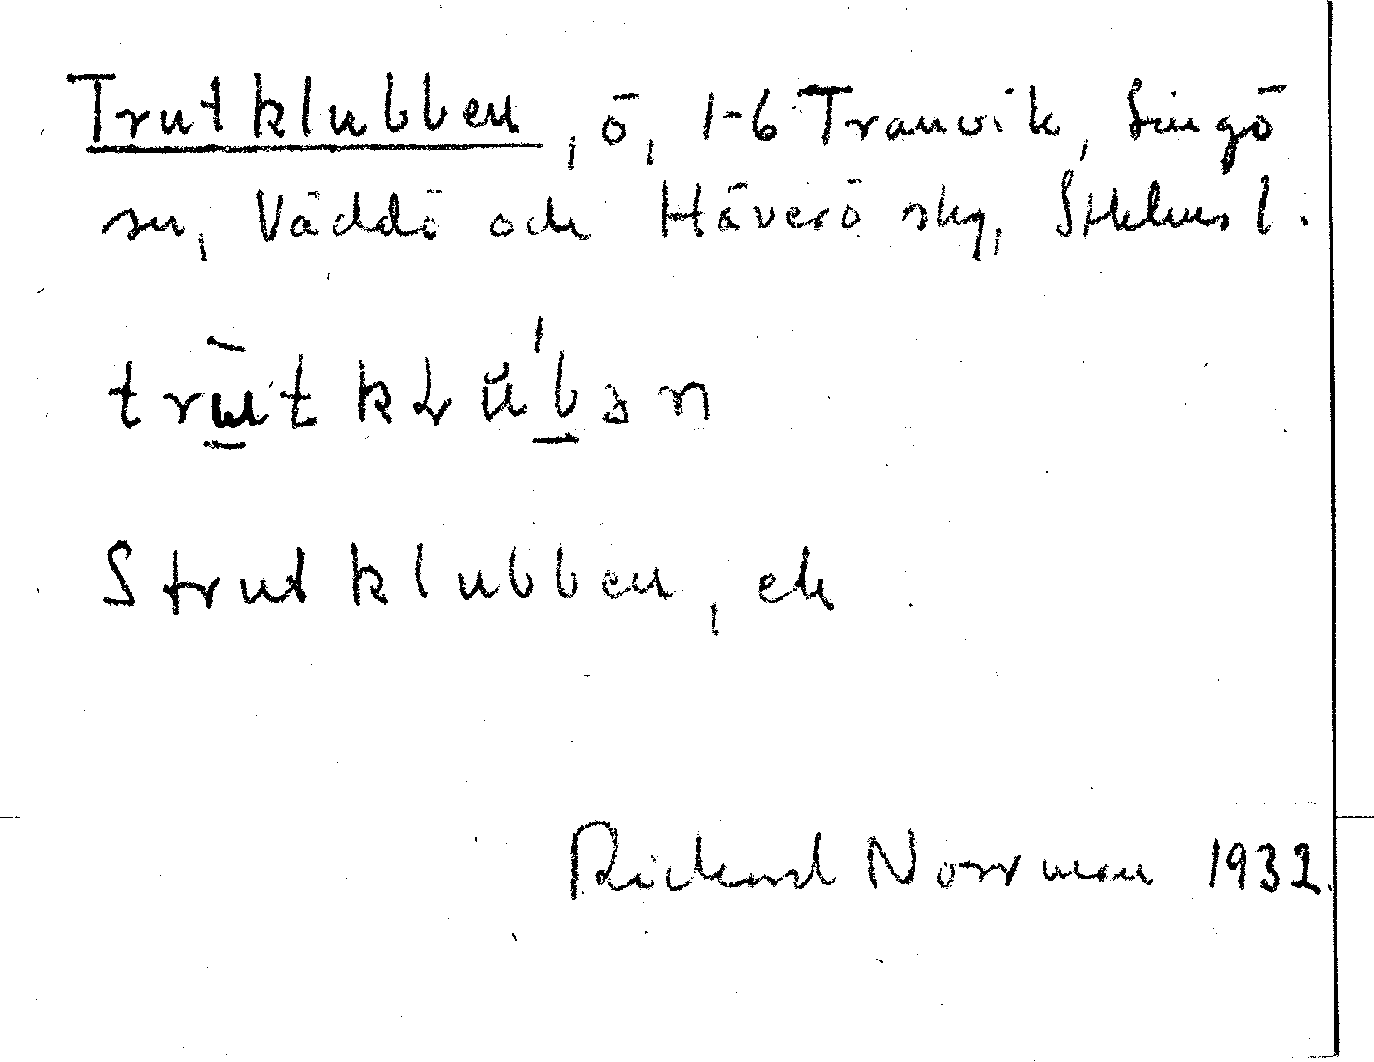 Trutklubben, ö, 1-6 Tranvik, Singö
sn, Väddö och Häverö skg, Sthlms l.
trùtkLŭ'bən
Strutklubben, ek
Rickard Norrman 1932.